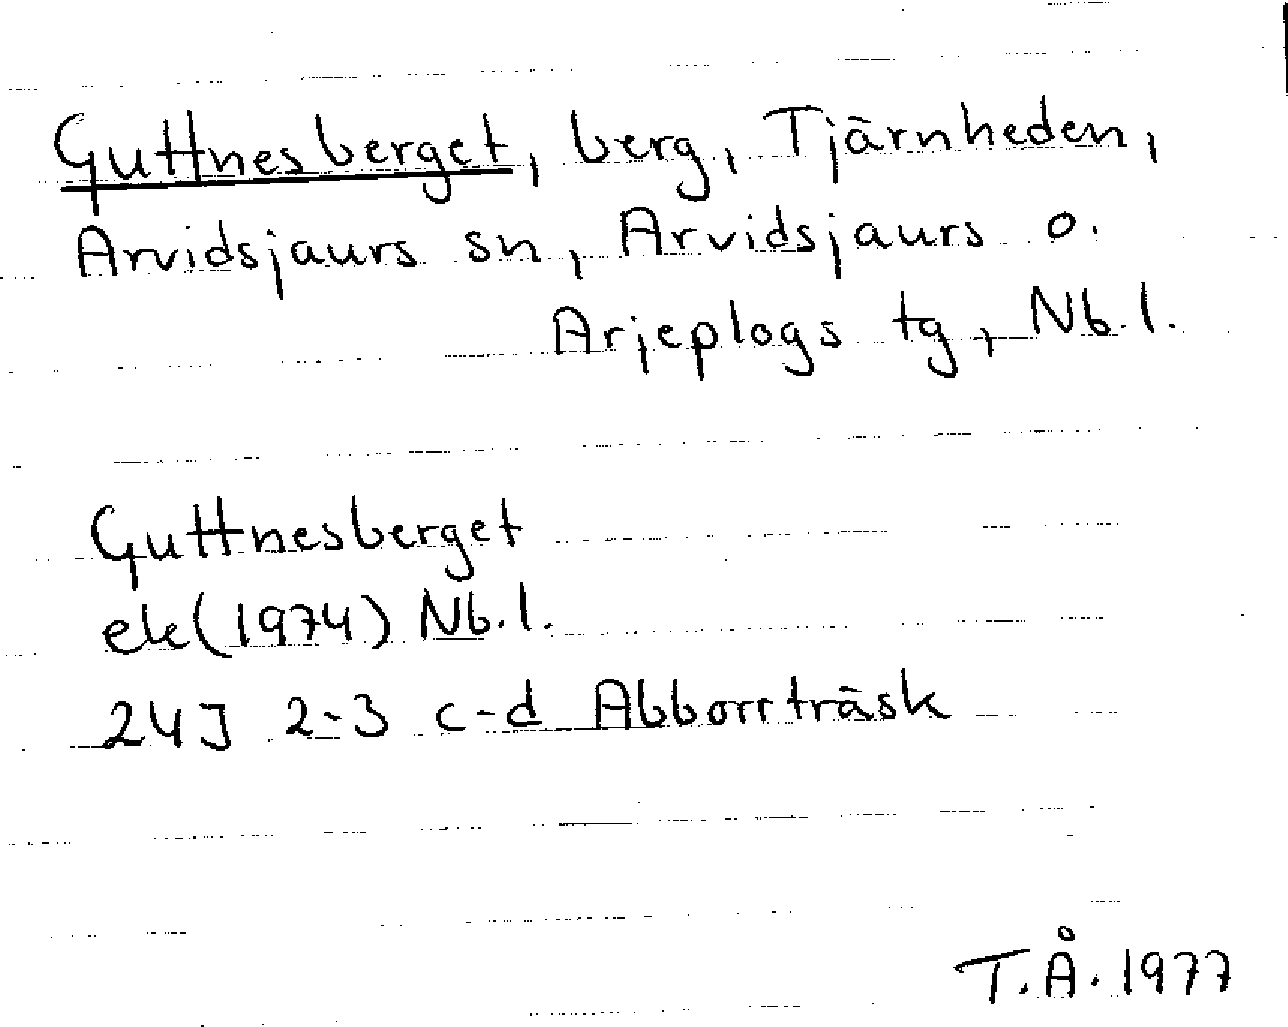 Guttnesberget, berg, Tjärnheden,
Arvidsjaurs sn, Arvidsjaurs o.
Arjeplogs tg, Nb.l.
Guttnesberget
ek(1974) Nb.l.
24J 2-3 c-d Abborrträsk
T.Å. 1977